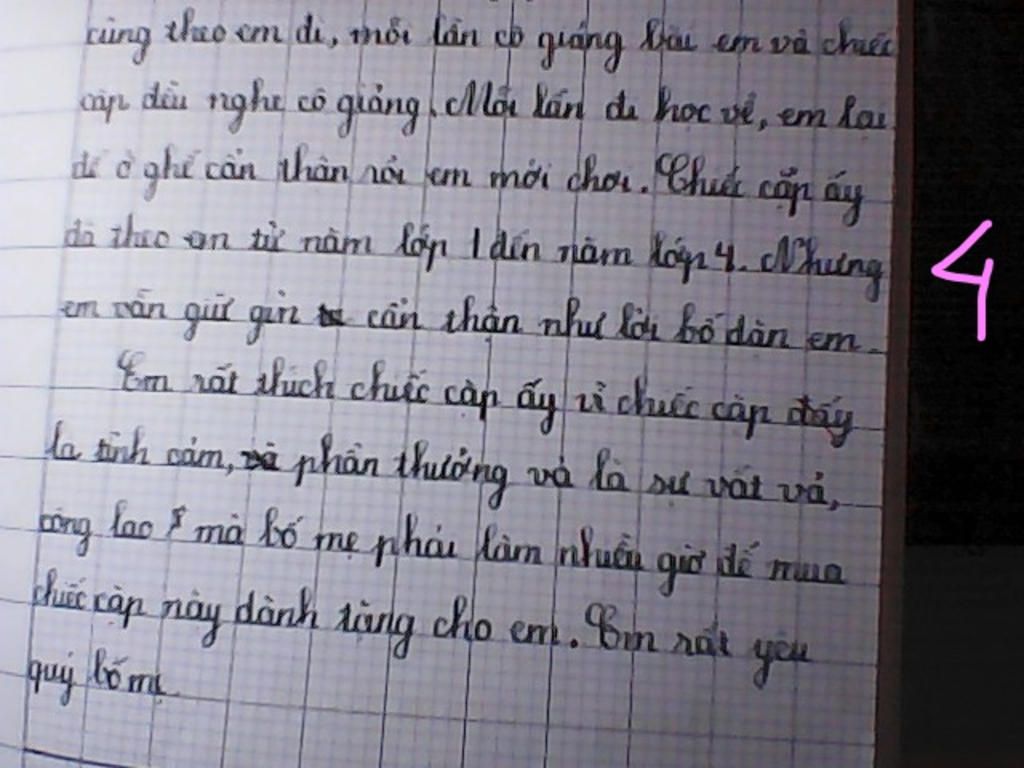 cũng theo em đi, mỗi lần cô giảng bài em và chiếc
cặp đều nghe cô giảng. Mỗi lần đi học về, em lại
để ở ghế cẩn thận rồi em mới chơi. Chiếc cặp ấy
đã theo em từ năm lớp 1 đến năm lớp 4. Nhưng
em vẫn giữ gìn cẩn thận như lời bố dặn em.
Em rất thích chiếc cặp ấy vì chiếc cặp đấy
là tình cảm, và phần thưởng và là sự vất vả,
công lao mà bố mẹ phải làm nhiều giờ để mua
chiếc cặp này dành tặng cho em. Em rất yêu
quý bố mẹ.
4